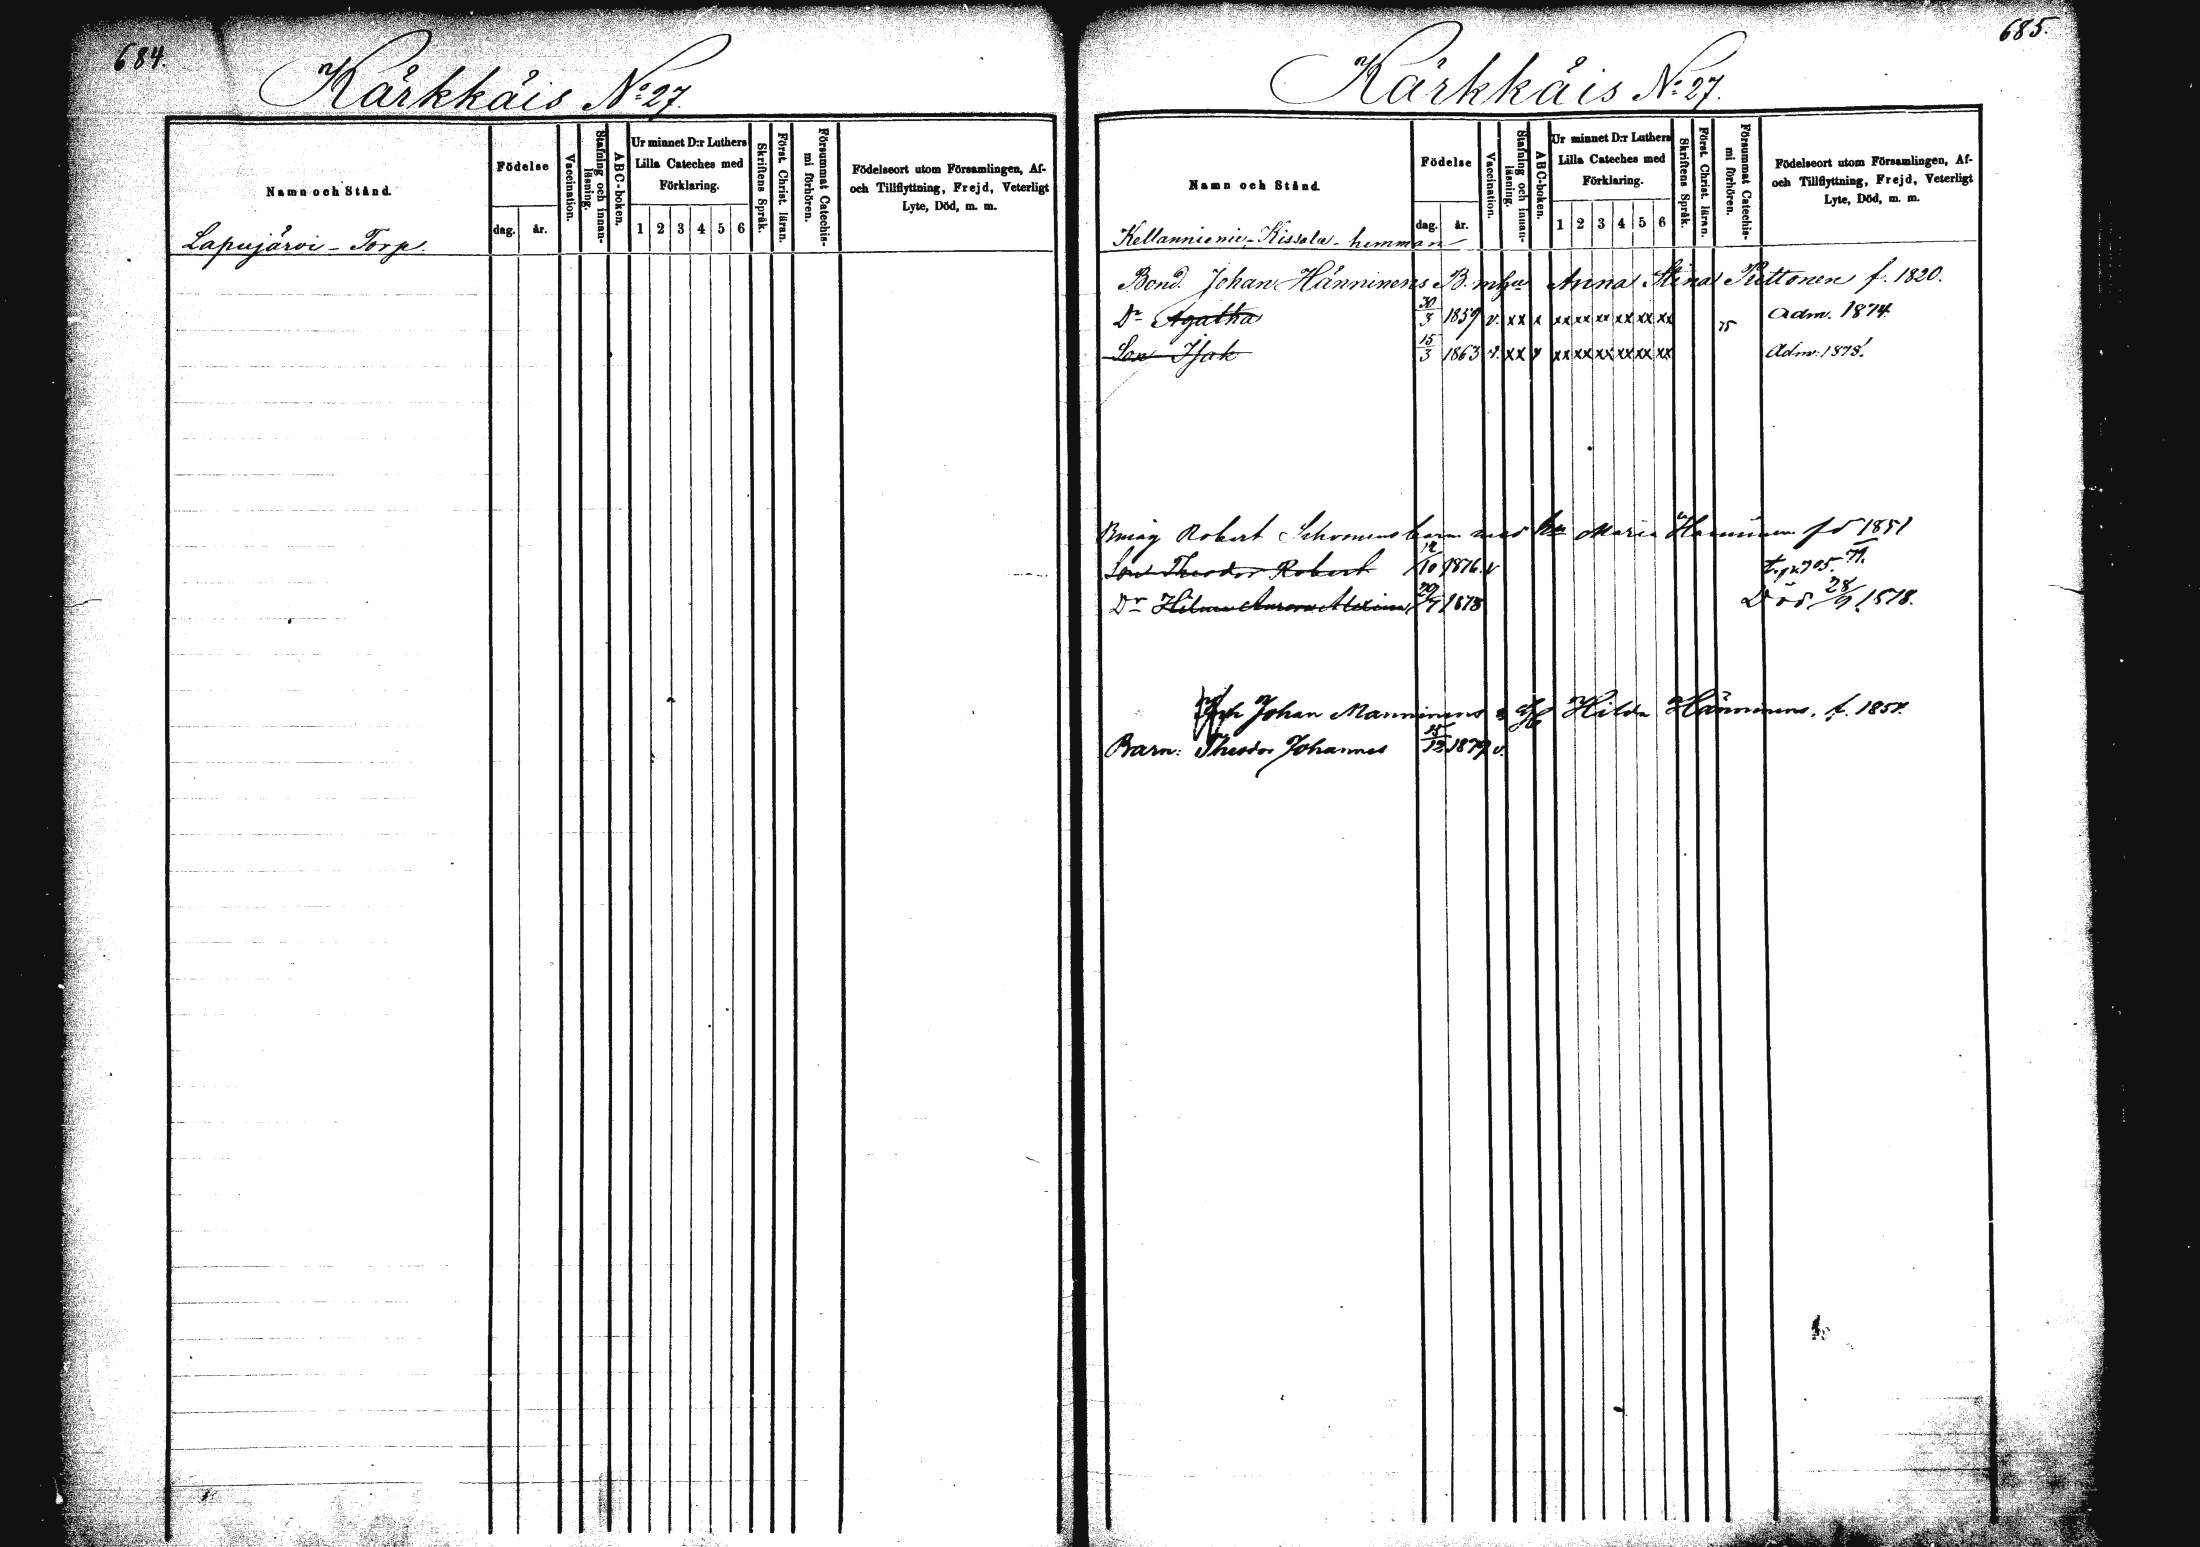 684.
Kärkkäis No 27.
Namn och Stånd.
Födelse
dag. år.
Vaccination.
Stafning och innan-
läsning.
ABC-boken.
Ur minnet D:r Luthers
Lilla Cateches med
Förklaring.
1 2 3 4 5 6
Skriftens Språk.
Först. Christ. läran.
Försummat Catechis-
mi förhören.
Födelseort utom Församlingen, Af-
och Tillflyttning, Frejd, Veterligt
Lyte, Död, m. m.
Lapujärvi - Torp.
685.
Kärkkäis No 27.
Namn och Stånd.
Födelse
dag. år.
Vaccination.
Stafning och innan-
läsning.
ABC-boken.
Ur minnet D:r Luthers
Lilla Cateches med
Förklaring.
1 2 3 4 5 6
Skriftens Språk.
Först. Christ. läran.
Försummat Catechis-
mi förhören.
Födelseort utom Församlingen, Af-
och Tillflyttning, Frejd, Veterligt
Lyte, Död, m. m.
Kellanniemi - Kissala - hemman
Bond. Johan Hänninens B. m hu Anna Stina Puttonen f. 1820.
Dr Agatha 30/3 1859 v. xx x xx xx xx xx xx xx 75 Adm. 1874
Son Isak 15/3 1863 v. xx x xx xx xx xx xx xx Adm. 1878.
Robert barn med hu Maria Hänninen fd 1851
Son Theodor Robert 12/10 1876. v
Dr Hilma Aurora 20/7 1878 Död 28/9 1878.
Johan Manninens Hilda Hänninens. f.
Barn: Theodor Johannes 15/12 1879 v.